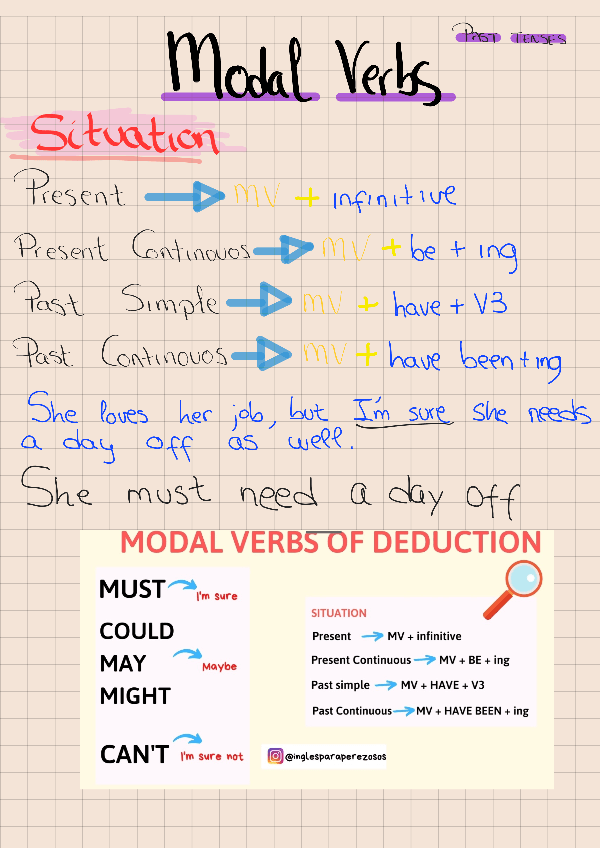 PAST TENSES
Modal Verbs
Situation
Present → MV + infinitive
Present Continouos → MV + be + ing
Past Simple → MV + have + V3
Past Continouos → MV + have been + ing
She loves her job, but I'm sure she needs
a day off as well.
She must need a day off
MODAL VERBS OF DEDUCTION
MUST → I'm sure
COULD
MAY → Maybe
MIGHT
CAN'T → I'm sure not
SITUATION
Present → MV + infinitive
Present Continuous → MV + BE + ing
Past simple → MV + HAVE + V3
Past Continuous → MV + HAVE BEEN + ing
@inglesparaperezosos